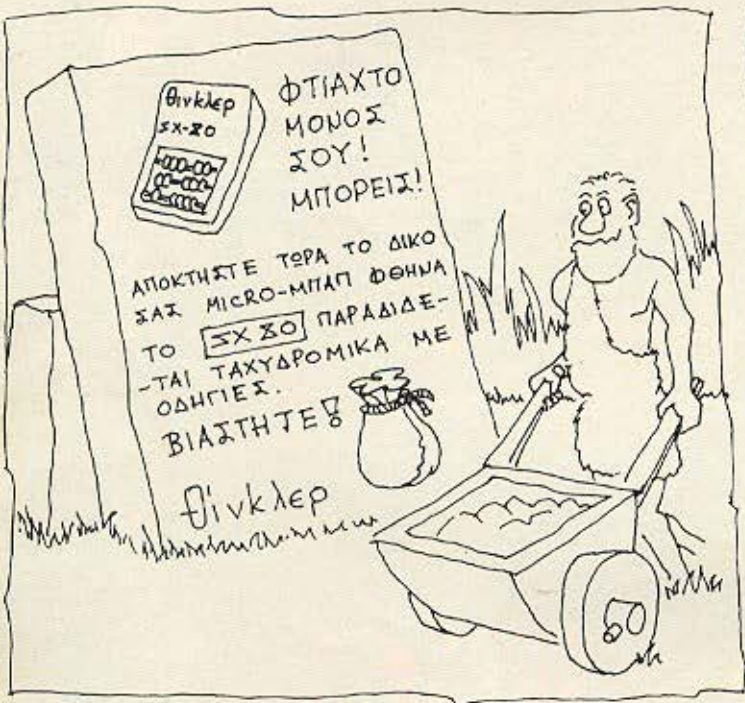 θινκλερ
ΣΧ-80
ΦΤΙΑΧΤΟ
ΜΟΝΟΣ
ΣΟΥ!
ΜΠΟΡΕΙΣ!
ΑΠΟΚΤΗΣΤΕ ΤΩΡΑ ΤΟ ΔΙΚΟ
ΣΑΣ MICRO-ΜΠΑΠ ΦΘΗΝΑ
ΤΟ ΣΧ 80 ΠΑΡΑΔΙΔΕ-
-ΤΑΙ ΤΑΧΥΔΡΟΜΙΚΑ ΜΕ
ΟΔΗΓΙΕΣ.
ΒΙΑΣΤΗΤΕ!
θίνκλερ